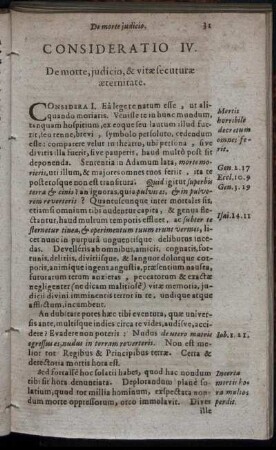 De morte judicio. 31
CONSIDERATIO IV.
De morte, judicio, & vitæ secuturæ
æternitate.
CONSIDERA I. Eâ lege te natum esse, ut ali-
quando moriaris. Venisse te in hunc mondum,
tanquam in hospitium, ex eoque seu lautum illud fue-
rit, seu tenue, brevi, symbolo persoluto, cedendum
esse: comparere velut in theatro, ubi persona, sive
divitis illa fuerit, sive pauperis, haud multò post sit
deponenda. Sententia in Adamum lata, morte mo-
rieris, uti illum, & majores omnes tuos feriit, ita te
posterosque non est transitura. Quid igitur superbis
terra & cinis? an ignoras, quia pulvis es, & in pulve-
rem reverteris? Quantuscunque inter mortales sis,
etiamsi omnium tibi nudetur caput, & genua fle-
ctantur, haud multum temporis est & ac subter te
sternetur tinea, & operimentum tuum erunt vermes,
licet nunc in purpurâ unguentisque delibutus ince-
das. Develleris ab omnibus, amicis, cognatis, for-
tunis, delitiis, divitiisque, & languor dolorque cor-
poris, animique ingens angustia, præsenti anxietas,
futurarum terrore
negligenter (ne dicam malitiosè) vitæ memoria, judi-
cii divini imminentis terror te in, undique atque
afflictum, incubuerint.
An dubitare potes hæc tibi eventura, quæ univer-
sis ante, multisque indies circa te vides, audisve, acci-
dere? Evadere non poteris: Nudus de utero matris
egressus es, nudus in terram reverteris. Non est me-
lior tot Regibus & Principibus terræ. Certa &
detractoria mortis hora est.
Sed fortassè hoc solatii habet, quod haud perinde
tibi sit hora denuntiata. Deplorandum planè so-
latium, quod tot millia hominum, exspectata non-
dum morte oppressorum, orco immolavit. Dives
ille
Mortis
horribile
decretum
omnes fe-
rit.
Gen. 2. 17
Eccl. 10. 9
Gen. 3. 19
Isai. 14. 11
Iob. 1. 21.
Incertæ
mortis ho-
ra multos
perdit.